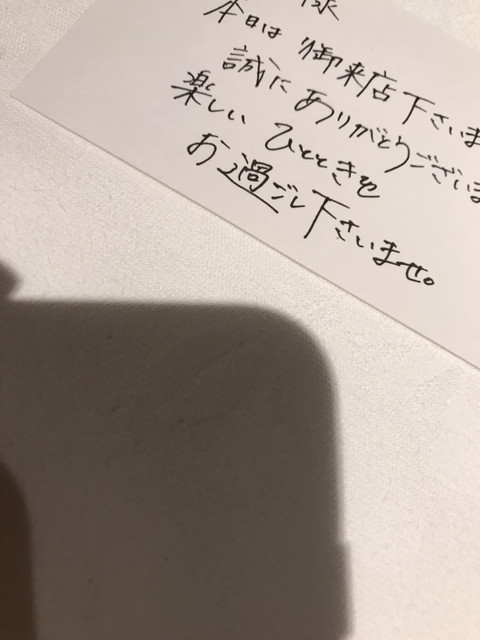 様
本日は 御来店下さいま
誠に ありがとうございま
楽しい ひとときを
お過ごし下さいませ。